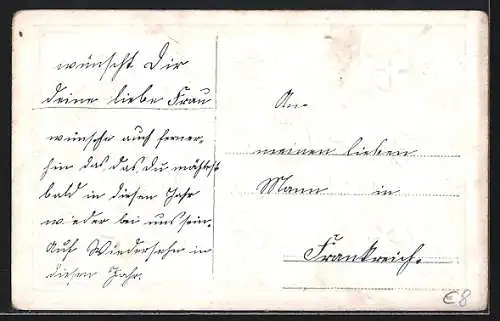 wünscht Dir
deine liebe Frau
wünsche auch ferner-
hin das das du möchtest
bald in diesen Jahr
wieder bei uns sein.
Auf Wiedersehe in
diesen Jahr.
An
meinen lieben
Mann in
Frankreich.
€8